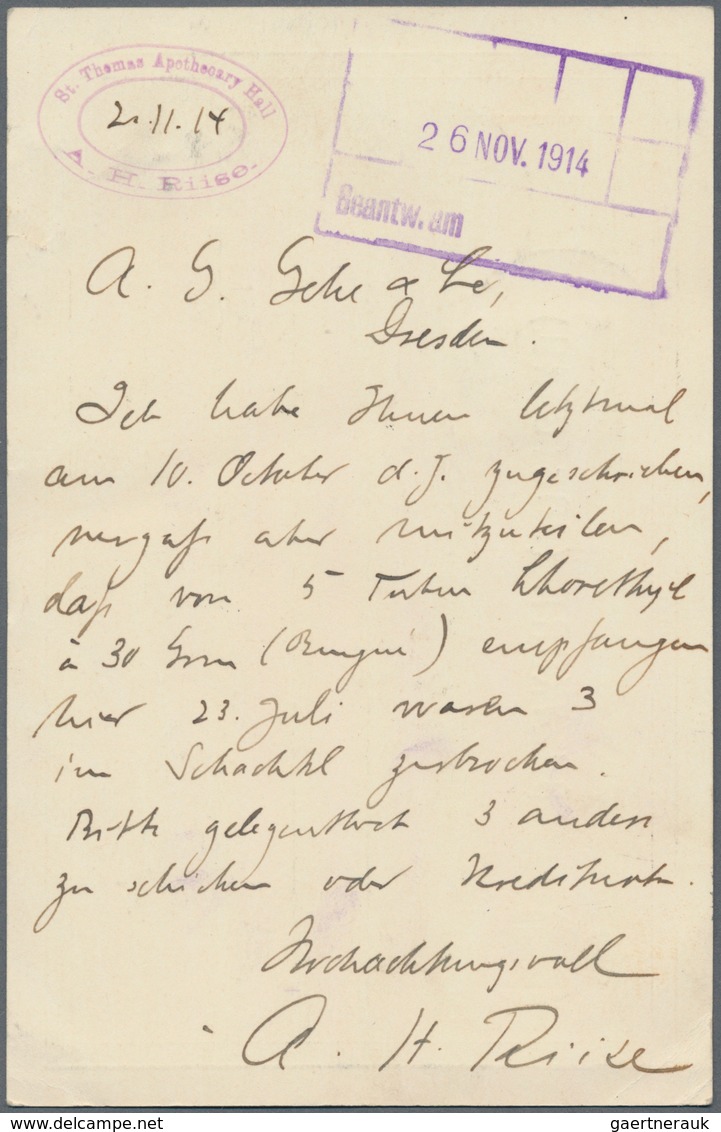 St. Thomas Apothecary Hall
2.11.14
A. H. Riise.
26 NOV. 1914
Beantw. am
A. G. Gehe & Co,
Dresden.
Ich habe Ihnen letztmal
am 10. October d. J. zugeschrieben,
vergaß aber mitzuteilen,
daß von 5 Tuben Chlorethyl
à 30 Grm (Bengué) empfangen
hier 23. Juli waren 3
im Schachtel zerbrochen.
Bitte gelegentlich 3 andere
zu schicken oder
Hochachtungsvoll
A. H. Riise
gaertnerauk